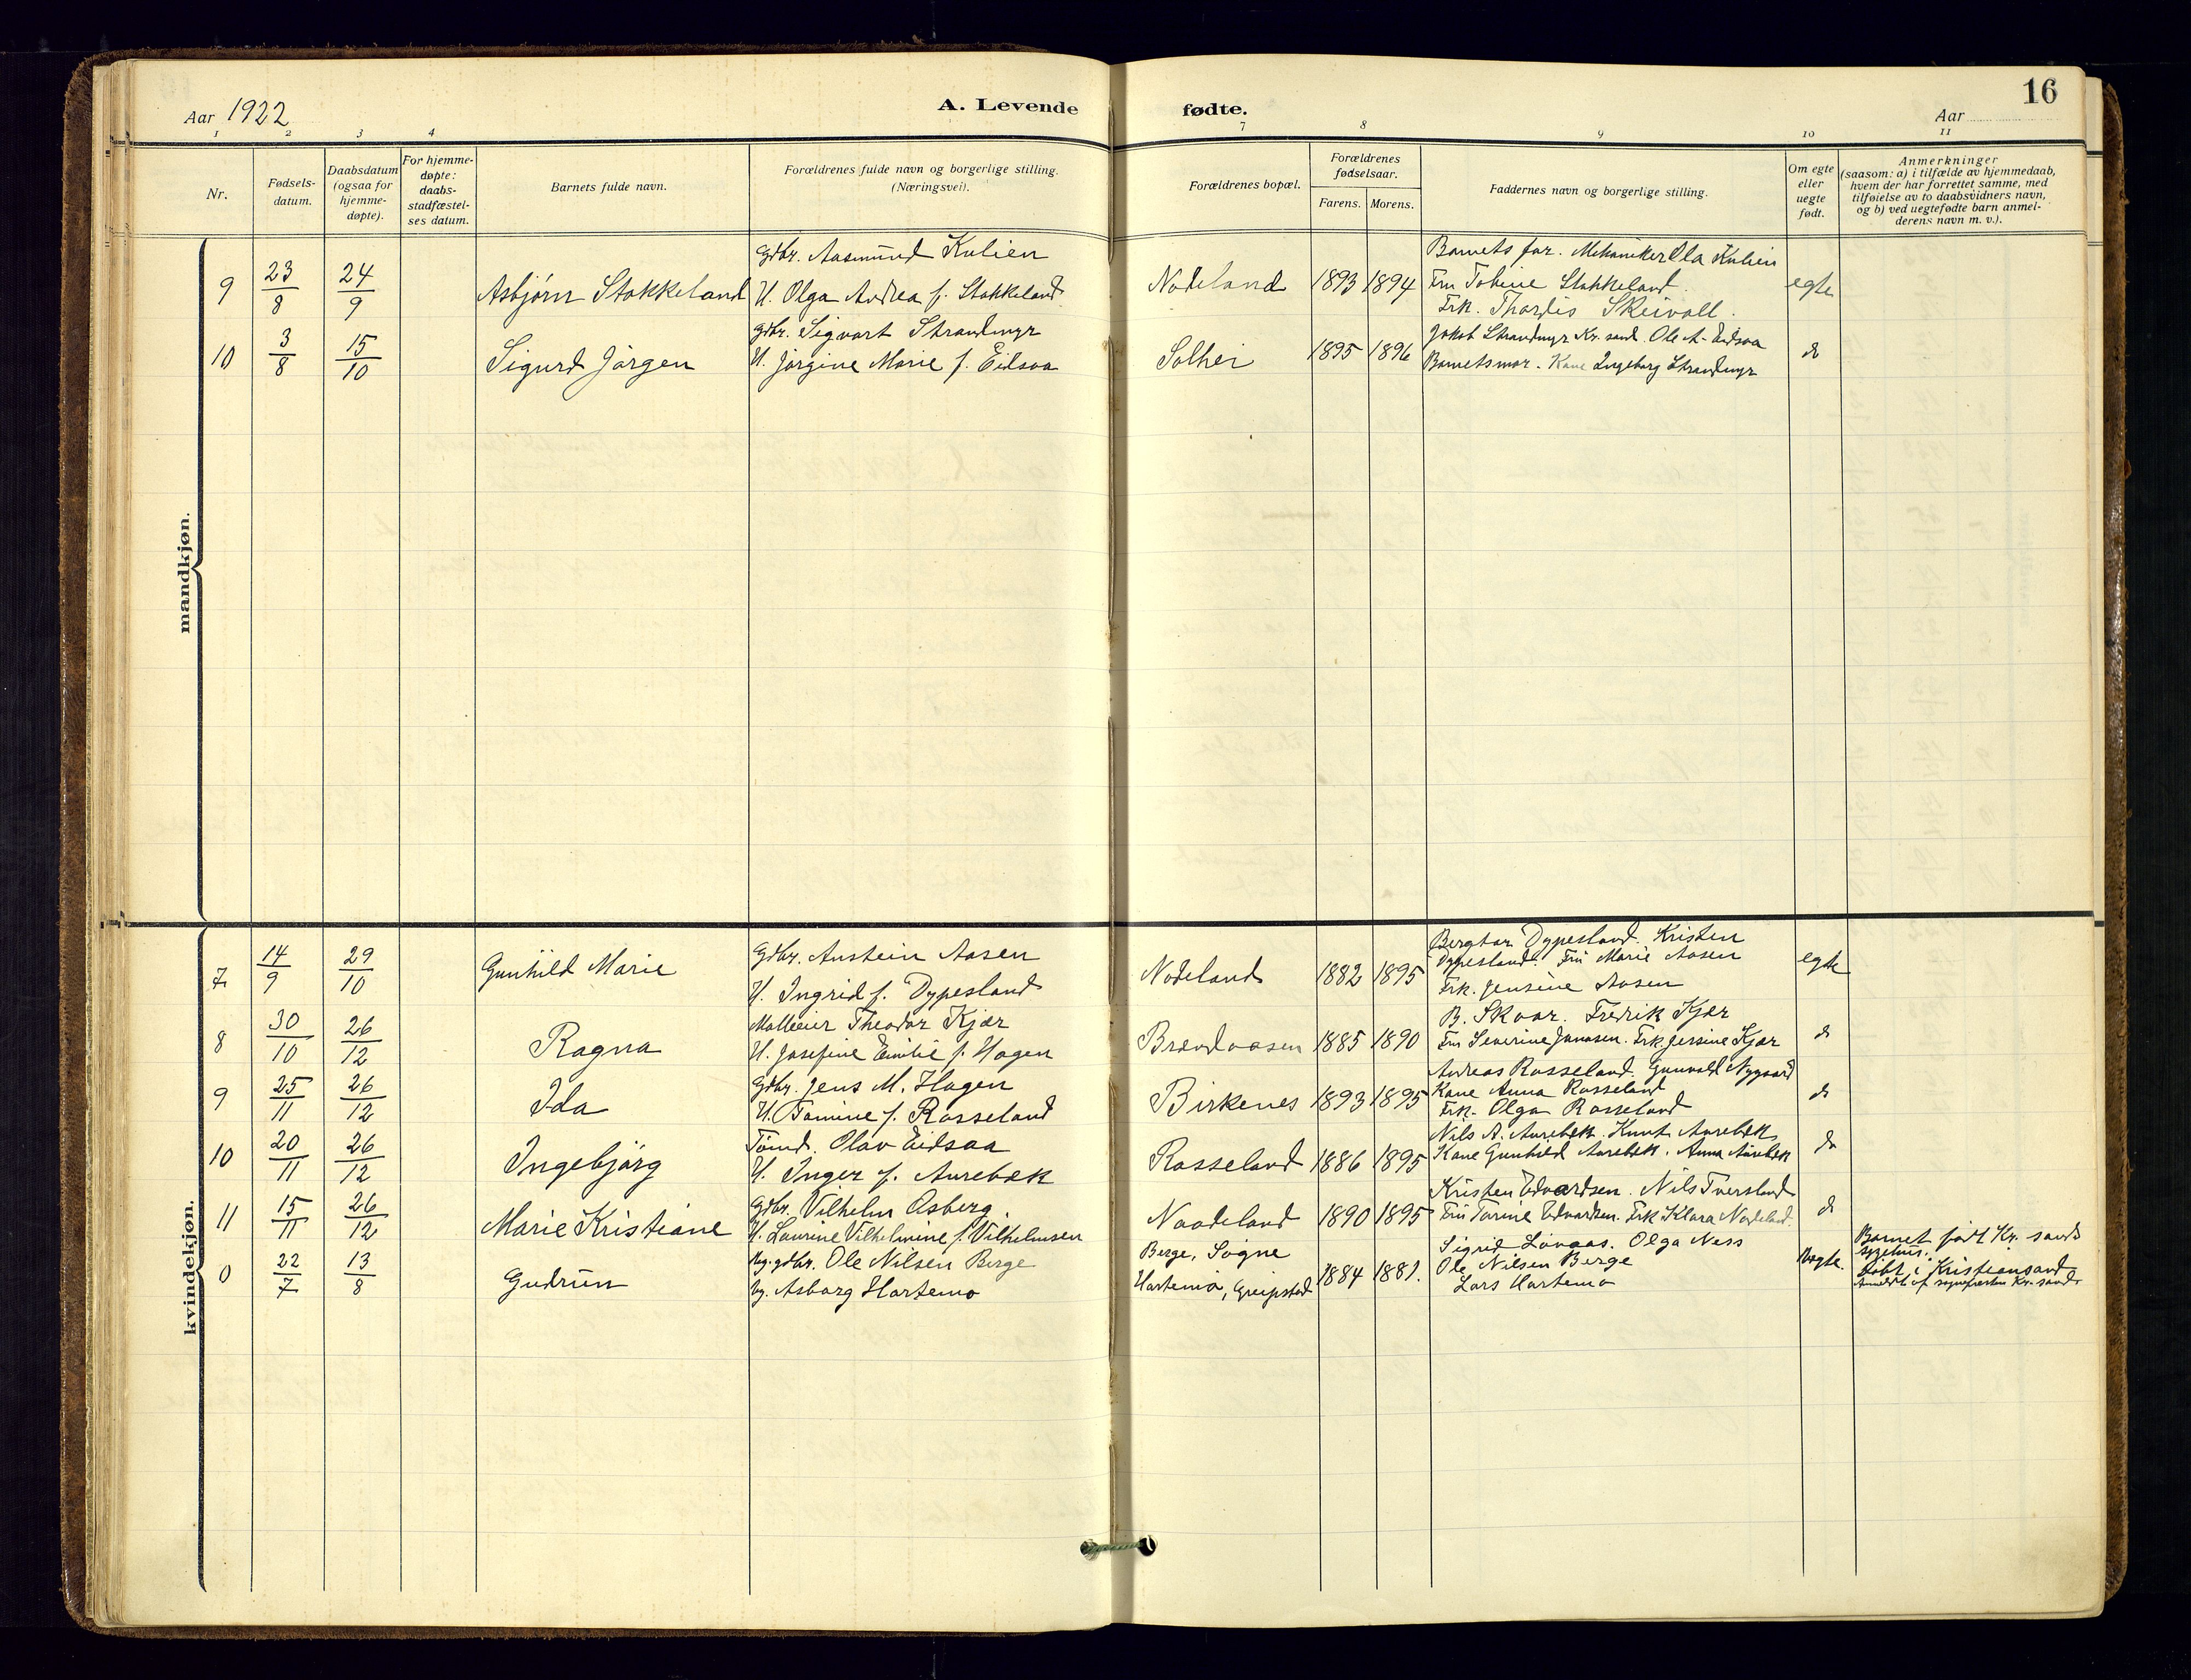 16
Aar 1922
A. Levende fødte.
Aar
1 2 3 4 7 8 9 10 11
Nr.
Fødsels-
datum.
Daabsdatum
(ogsaa for
hjemme-
døpte).
For hjemme-
døpte:
daabs-
stadfæstel-
ses datum.
Barnets fulde navn.
Forældrenes fulde navn og borgerlige stilling.
(Næringsvei).
Forældrenes bopæl.
Forældrenes
fødselsaar.
Farens. Morens.
Faddernes navn og borgerlige stilling.
Om egte
eller
uegte
født.
Anmerkninger
(saasom: a) i tilfælde av hjemmedaab,
hvem der har forrettet samme, med
tilføielse av to daabsvidners navn,
og b) ved uegtefødte barn anmel-
derens navn m. v.).
mandkjøn.
9 23/8 24/9 Asbjørn Stokkeland
Gdbr. Aasmund Kulien
H. Olga Andrea f. Stokkeland
Nodeland 1893 1894
Barnets far. Mekaniker Ola Kulien
Fru Tobine Stokkeland.
Frk. Thordis Skeivoll.
egte
10 3/8 15/10 Sigurd Jørgen
Gdbr. Sigvart Strandmyr
H. Jørgine Marie f. Eidsaa
Solhei 1895 1896
Jakob Strandmyr Kr. sand. Ole A. Eidsaa
Barnetsmor. Kone Ingeborg Strandmyr
do
kvindekjøn.
7 14/9 29/10 Gunhild Marie
Gdbr. Austein Aasen
H. Ingrid f. Dypesland
Nodeland 1882 1895
Bergtor Dypesland. Kristen
Dypesland. Fru Marie Aasen
Frk. Jensine Aasen
egte
8 30/10 26/12 Ragna
Theodor Kjær
H. Josefine Emilie f. Hagen
Brandaasen 1885 1890
B. Skaar. Fredrik Kjær
Fru Severine Jonasen. Frk. Jensine Kjær
do
9 25/11 26/12 Ida
Gdbr. Jens M. Hagen
H. Tomine f. Rosseland
Birkenes 1893 1895
Andreas Rosseland. Gunvald Nygaard
Kone Anna Rosseland
Frk. Olga Rosseland
do
10 20/11 26/12 Ingebjørg
Tømd. Olav Eidsaa
H. Inger f. Aurebek
Rosseland 1886 1895
Nils A. Aurebek. Knut Aurebek
Kone Gunhild Aurebek. Anna Aurebek
do
11 15/11 26/12 Marie Kristiane
Gdbr. Vilhelm Asberg.
H. Laurine Vilhelmine f. Vilhelmsen
Noodeland 1890 1895
Kristen Edvardsen. Nils Tversland
Fru Torine Edvardsen. Frk Klara Nodeland.
do
0 22/7 13/8 Gudrun
Ug. gdbr. Ole Nilsen Berge
Ug. Asborg Hortemo
Berge, Søgne
Hortemo, Greipstad 1884 1881.
Sigrid Løvaas. Olga Ness
Ole Nilsen Berge
Lars Hortemo
Uegte.
Barnet født Kr. sands
sygehus.
Døbt i Kristiansand
Anmeldt af sognepresten Kr. sand.